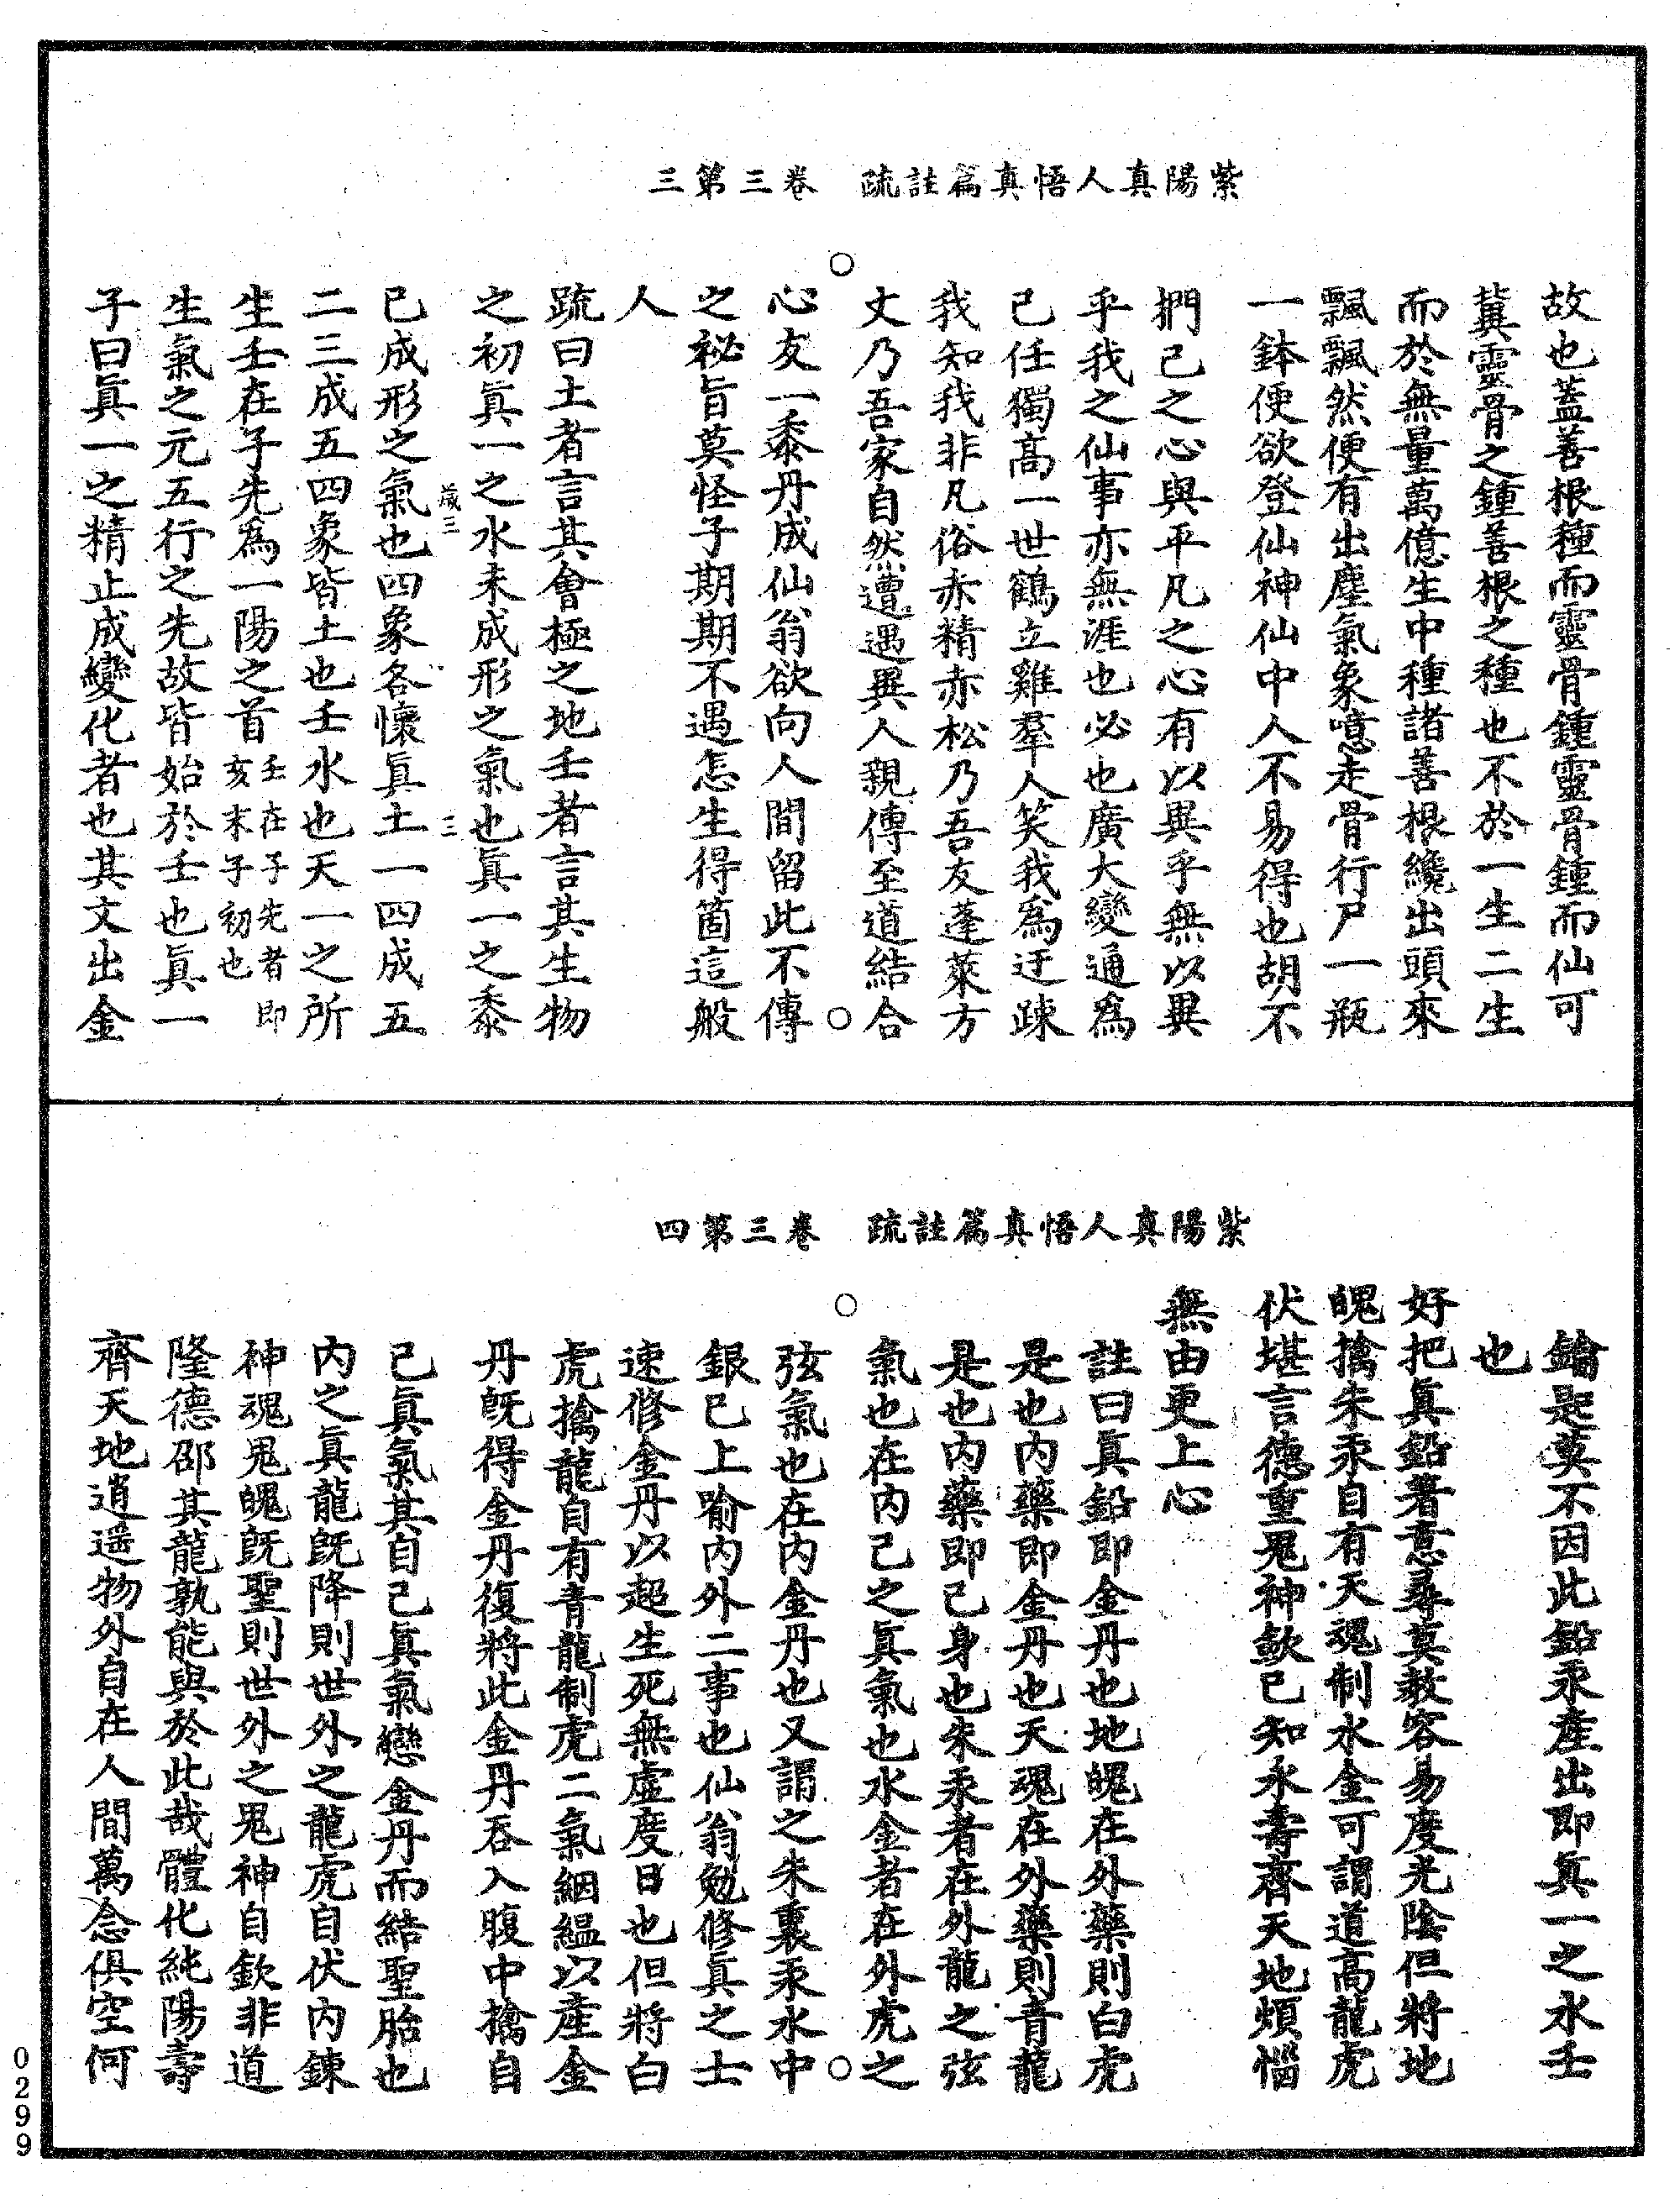 紫陽真人悟真篇註疏　卷三第三
故也蓋善根種而靈骨鍾靈骨鍾而仙可
冀靈骨之鍾善根之種也不於一生二生
而於無量萬億生中種諸善根纔出頭來
飄飄然便有出塵氣象噫走骨行尸一瓶
一鉢便欲登仙神仙中人不易得也胡不
捫己之心與平凡之心有以異乎無以異
乎我之仙事亦無涯也必也廣大變通爲
己任獨高一世鶴立雞羣人笑我爲迂踈
我知我非凡俗赤精赤松乃吾友蓬萊方
丈乃吾家自然遭遇異人親傳至道結合
心友一黍丹成仙翁欲向人間留此不傳
之祕旨莫怪子期期不遇怎生得箇這般
人
疏曰土者言其會極之地壬者言其生物
之初眞一之水未成形之氣也眞一之黍
已成形之氣也四象各懷眞土一四成五
二三成五四象皆土也壬水也天一之所
生壬在子先爲一陽之首壬在子先者即亥末子初也
生氣之元五行之先故皆始於壬也眞一
子曰眞一之精止成變化者也其文出金
歲三
三
紫陽真人悟真篇註疏　卷三第四
鑰是莫不因此鉛汞產出即眞一之水壬
也
好把眞鉛著意尋莫教容易度光陰但將地
魄擒朱汞自有天魂制水金可謂道高龍虎
伏堪言德重鬼神欽已知永壽齊天地煩惱
無由更上心
註曰眞鉛即金丹也地魄在外藥則白虎
是也内藥即金丹也天魂在外藥則青龍
是也内藥即己身也朱汞者在外龍之弦
氣也在内己之眞氣也水金者在外虎之
弦氣也在内金丹也又謂之朱裏汞水中
銀已上喻内外二事也仙翁勉修眞之士
速修金丹以超生死無虛度日也但將白
虎擒龍自有青龍制虎二氣絪縕以產金
丹旣得金丹復將此金丹吞入腹中擒自
己眞氣其自己眞氣戀金丹而結聖胎也
内之眞龍旣降則世外之龍虎自伏内鍊
神魂鬼魄旣聖則世外之鬼神自欽非道
隆德邵其龍孰能與於此哉體化純陽壽
齊天地逍遥物外自在人間萬念俱空何
0299